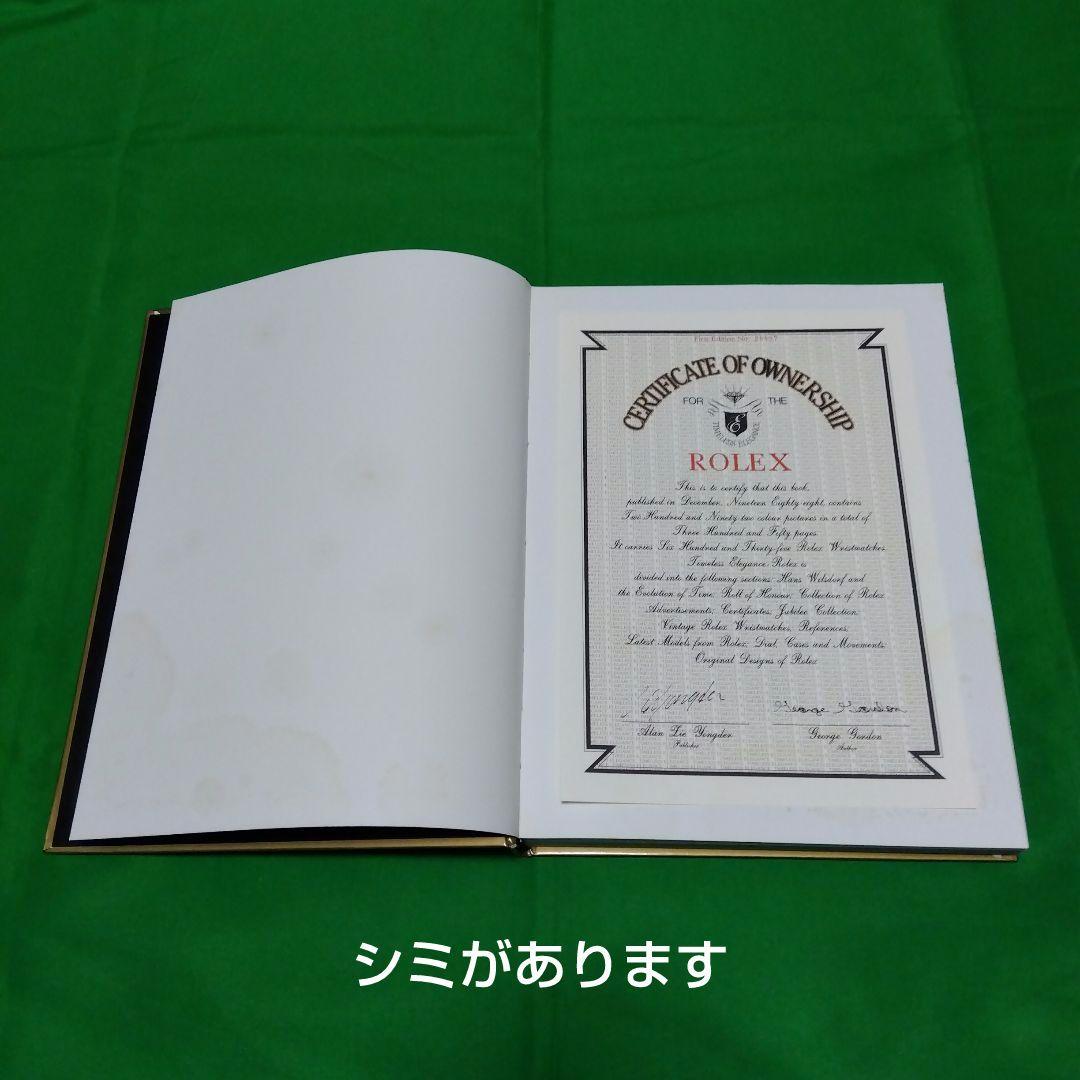 First Edition No.
CERTIFICATE OF OWNERSHIP
FOR THE
E
TIMELESS ELEGANCE
ROLEX
This is to certify that this book,
published in December, Nineteen Eighty-eight, contains
Two Hundred and Ninety-two colour pictures in a total of
Three Hundred and Fifty pages.
It carries Six Hundred and Thirty-five Rolex Wristwatches.
Timeless Elegance: Rolex is
divided into the following sections: Hans Wilsdorf and
the Evolution of Time; Roll of Honour; Collection of Rolex
Advertisements; Certificates; Jubilee Collection;
Vintage Rolex Wristwatches; References;
Latest Models from Rolex; Dial, Cases and Movements;
Original Designs of Rolex
George Gordon
Alan Zie Yongder
George Gordon
Publisher
Author
シミがあります